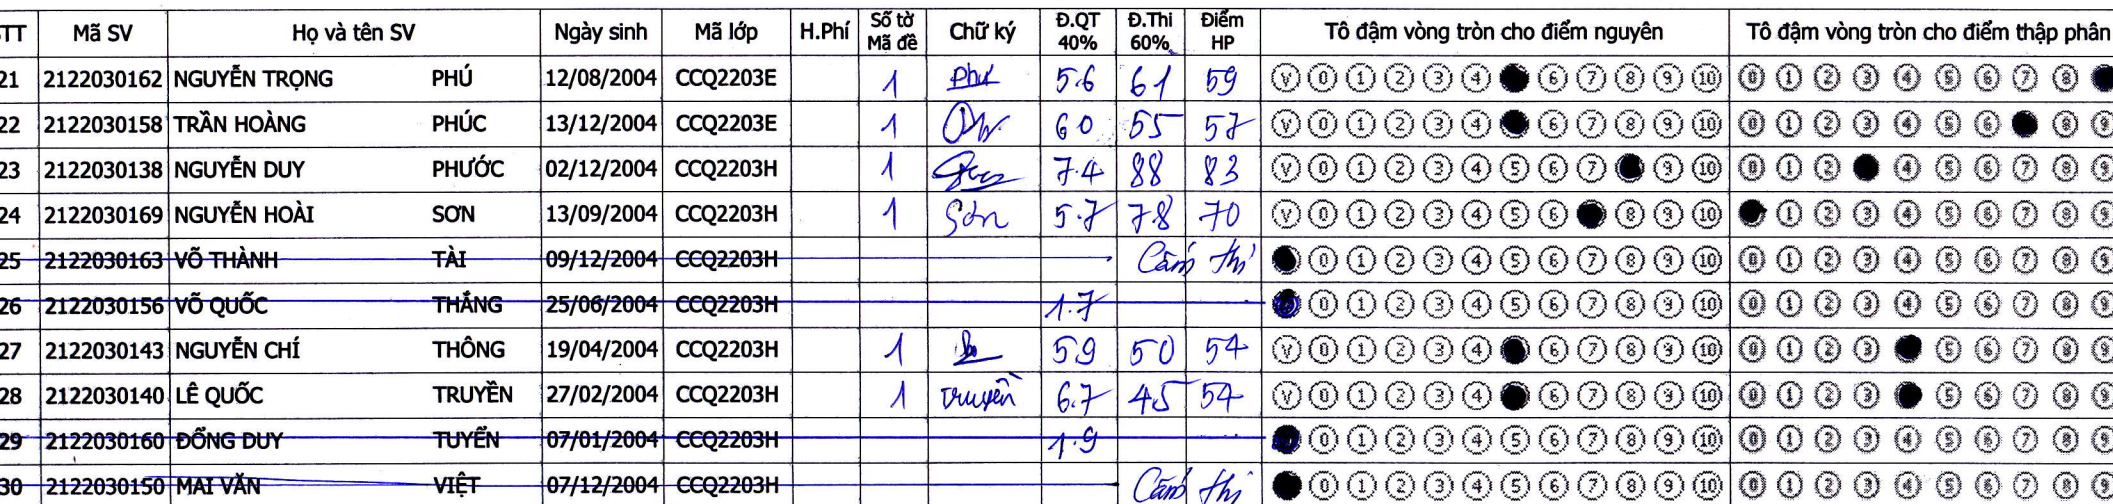 STT Mã SV Họ và tên SV Ngày sinh Mã lớp H.Phí Số tờ Mã đề Chữ ký Đ.QT 40% Đ.Thi 60% Điểm HP Tô đậm vòng tròn cho điểm nguyên Tô đậm vòng tròn cho điểm thập phân
21 2122030162 NGUYỄN TRỌNG PHÚ 12/08/2004 CCQ2203E 1 Phú 5.6 61 59 V 0 1 2 3 4 6 7 8 9 10 0 1 2 3 4 5 6 7 8
22 2122030158 TRẦN HOÀNG PHÚC 13/12/2004 CCQ2203E 1 60 55 57 V 0 1 2 3 4 6 7 8 9 10 0 1 2 3 4 5 6 8 9
23 2122030138 NGUYỄN DUY PHƯỚC 02/12/2004 CCQ2203H 1 7.4 88 83 V 0 1 2 3 4 5 6 7 9 10 0 1 2 4 5 6 7 8 9
24 2122030169 NGUYỄN HOÀI SƠN 13/09/2004 CCQ2203H 1 Sơn 5.7 78 70 V 0 1 2 3 4 5 6 8 9 10 1 2 3 4 5 6 7 8 9
25 2122030163 VÕ THÀNH TÀI 09/12/2004 CCQ2203H Cấm thi 0 1 2 3 4 5 6 7 8 9 10 0 1 2 3 4 5 6 7 8 9
26 2122030156 VÕ QUỐC THẮNG 25/06/2004 CCQ2203H 1.7 0 1 2 3 4 5 6 7 8 9 10 0 1 2 3 4 5 6 7 8 9
27 2122030143 NGUYỄN CHÍ THÔNG 19/04/2004 CCQ2203H 1 59 50 54 V 0 1 2 3 4 6 7 8 9 10 0 1 2 3 5 6 7 8 9
28 2122030140 LÊ QUỐC TRUYỀN 27/02/2004 CCQ2203H 1 Truyền 6.7 45 54 V 0 1 2 3 4 6 7 8 9 10 0 1 2 3 5 6 7 8 9
29 2122030160 ĐỔNG DUY TUYỂN 07/01/2004 CCQ2203H 1.9 0 1 2 3 4 5 6 7 8 9 10 0 1 2 3 4 5 6 7 8 9
30 2122030150 MAI VĂN VIỆT 07/12/2004 CCQ2203H Cấm thi 0 1 2 3 4 5 6 7 8 9 10 0 1 2 3 4 5 6 7 8 9